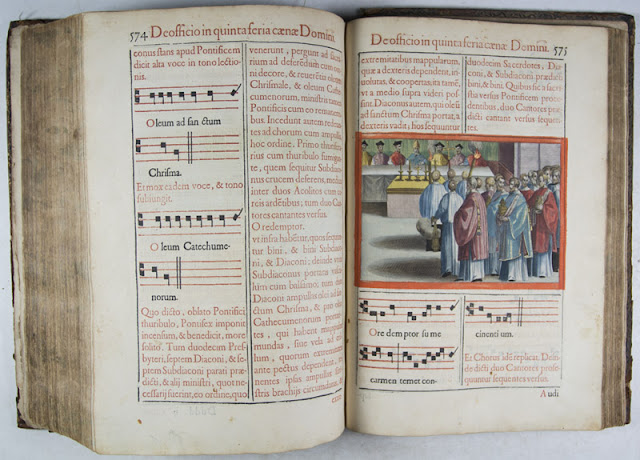 574 De officio in quinta feria cænæ Domini.
conus stans apud Pontificem
dicit alta voce in tono lectio-
nis.
Oleum ad san ctum
Chrisma.
Et mox eadem voce, & tono
subiungit.
Oleum Catechume-
norum.
Quo dicto, oblato Pontifici
thuribulo, Pontifex imponit
incensum, & benedicit, more
solito. Tum duodecim Pres-
byteri, septem Diaconi, & se-
ptem Subdiaconi parati præ-
dicti, & alij ministri, quot ne-
cessarij fuerint, eo ordine, quo
venerunt, pergunt ad
ad deferendum cum
ni decore, & reuerentia oleum
Chrismale, & oleum
cumenorum, ministra tamen
Pontificis cum eo remanenti-
bus. Incedunt autem redeun-
tes ad chorum cum
hoc ordine. Primo thurifera-
rius cum thuribulo fumigan-
te, quem sequitur Subdiaco-
nus crucem deferens, medius
inter duos Acolitos cum ce-
reis ardentibus; tum duo Can-
tores cantantes versus.
O redemptor.
vt infra habetur, quos sequun-
tur bini, & bini Subdiaco-
ni, & Diaconi; deinde vnus
Subdiaconus portans
lum cum balsamo; tum duo
Diaconi ampullas olei
ctum Chrisma, & pro
Cathecumenorum portan-
tes, qui habent
mundas, siue vela ad
lum, quorum extremitates
ante pectus dependent,
nentes ipsis ampullis
stris brachijs circumdatas,
De officio in quinta feria cænæ Domini. 575
extremitatibus mappularum,
quæ a dexteris dependent, in-
uolutas, & coopertas, ita tamen,
vt a medio supra videri pos-
sint, Diaconus autem, qui oleum
ad sanctum Chrisma portat, a
dexteris vadit; hos sequuntur
duodecim Sacerdotes, Dia-
coni, & Subdiaconi prædicti
bini, & bini. Quibus sic a sacri-
stia versus Pontificem proce-
dentibus, duo Cantores præ-
dicti cantant versus sequen-
tes.
Ore dem ptor su me
carmen temet con-
cinenti um.
Et Chorus idem replicat. Dein-
de dicti duo Cantores prose-
quuntur sequentes versus.
Audi